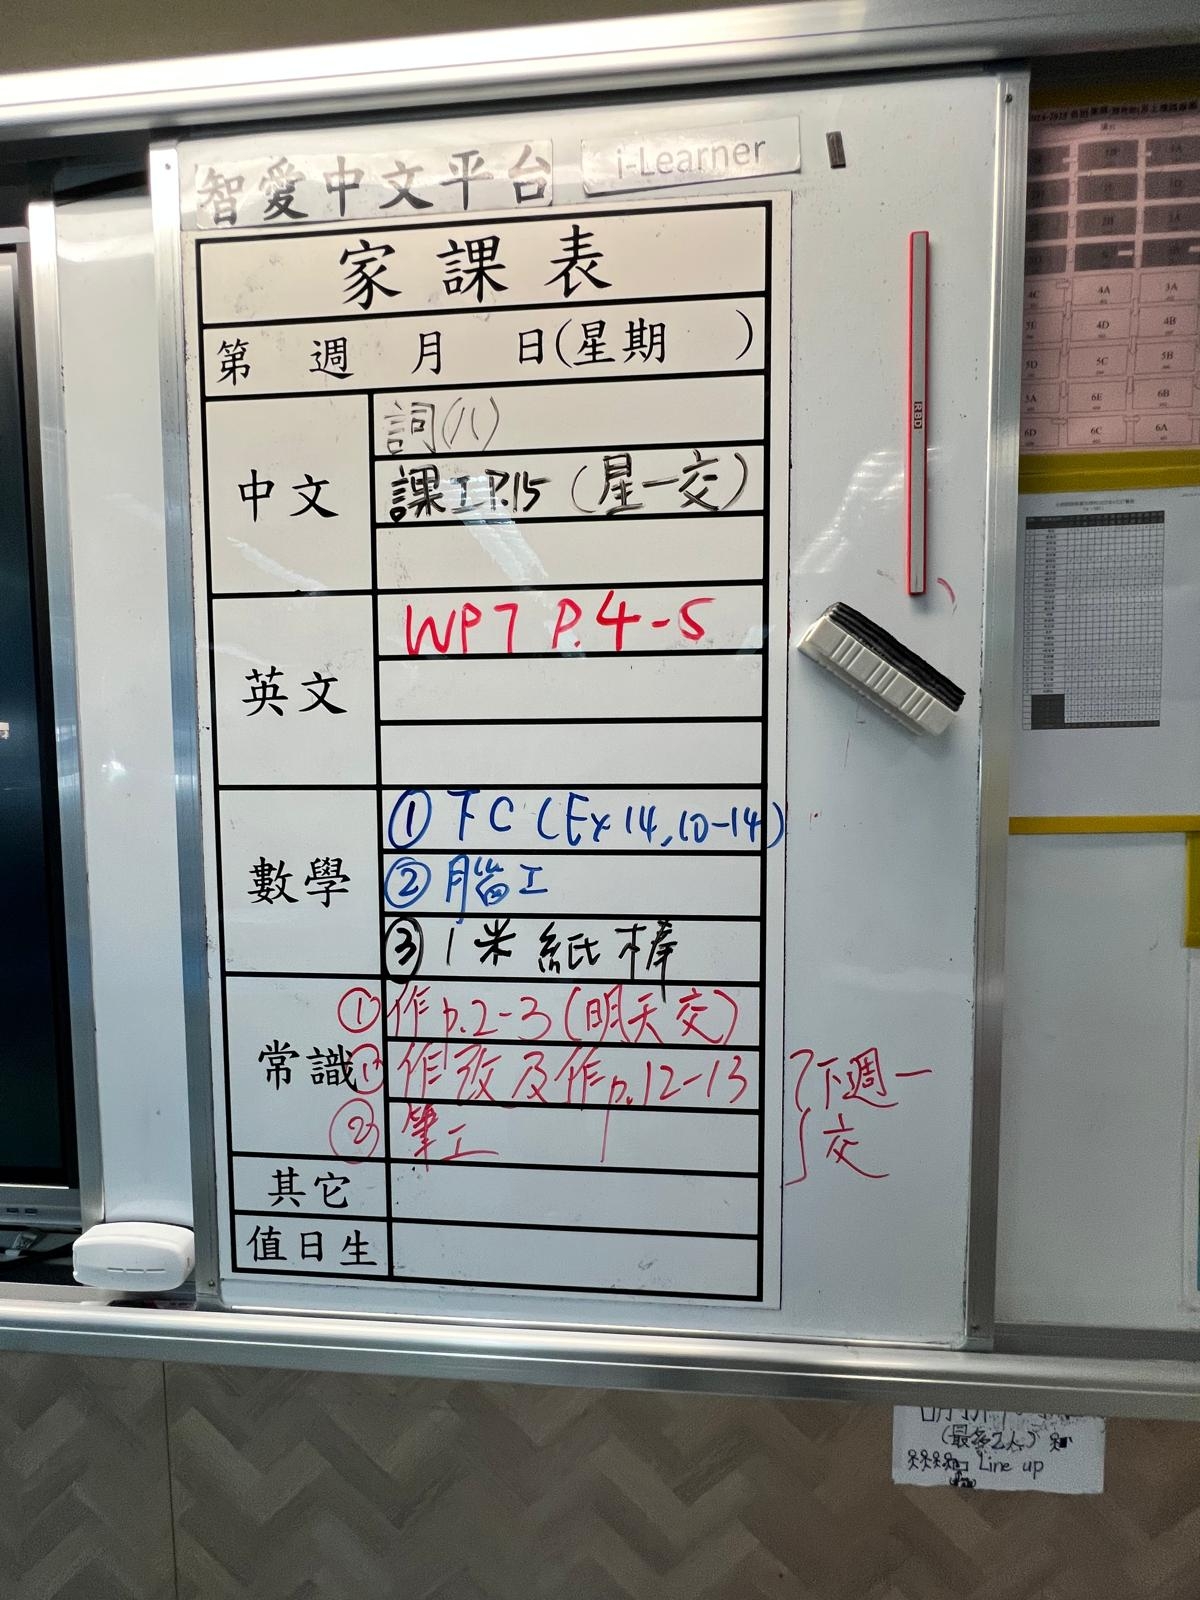 智愛中文平台 i-Learner
家課表
第 週 月 日(星期 )
中文
詞(八)
課工P.15 (星一交)
英文
WP7 P.4-5
數學
① 下C (Ex 14, 10-14)
② 腦工
③ 1米紙棒
常識
① 作p.2-3 (明天交)
① 作改及作p.12-13
② 筆工
下週一
交
其它
值日生
RBD
4C 4A 3A
4D 4B
5D 5C 5B
6E 6B
6D 6C 6A
(最多2人)
Line up